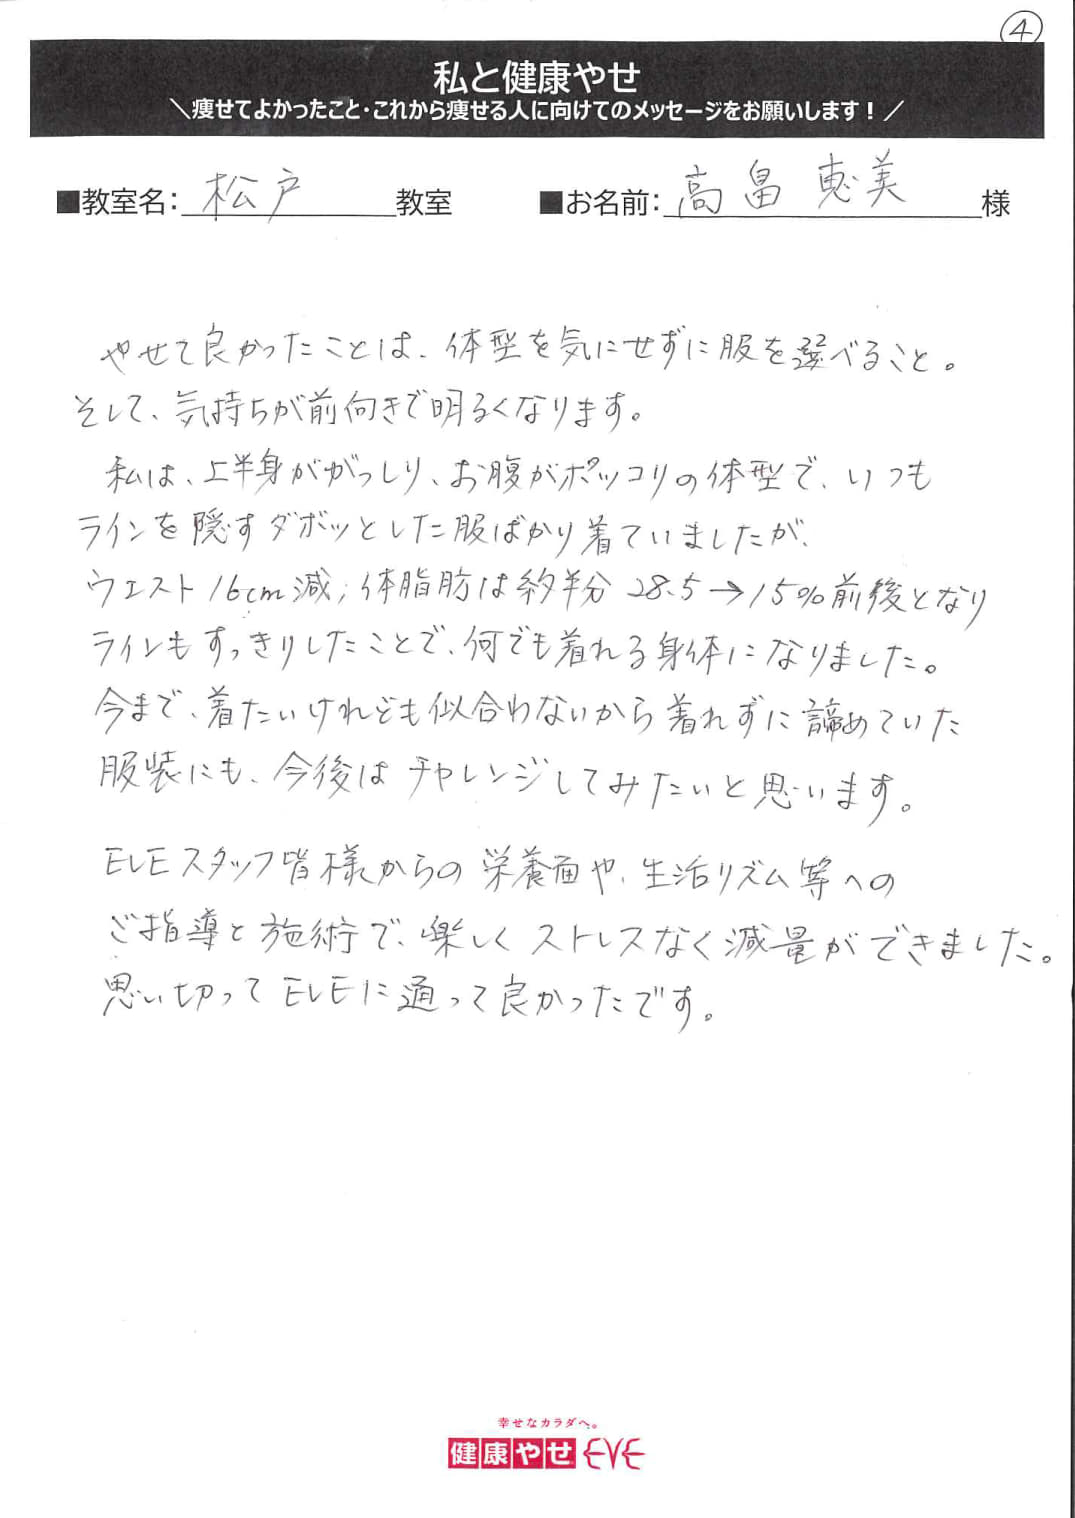 ④
私と健康やせ
＼痩せてよかったこと・これから痩せる人に向けてのメッセージをお願いします！／
■教室名：松戸教室 ■お名前：高畠恵美様
やせて良かったことは、体型を気にせずに服を選べること。
そして、気持ちが前向きで明るくなります。
私は、上半身ががっしり、お腹がポッコリの体型で、いつも
ラインを隠すダボッとした服ばかり着ていましたが、
ウエスト16cm減、体脂肪は約半分 28.5→15%前後となり
ラインもすっきりしたことで、何でも着れる身体になりました。
今まで、着たいけれども似合わないから着れずに諦めていた
服装にも、今後はチャレンジしてみたいと思います。
EVEスタッフ皆様からの栄養面や、生活リズム等への
ご指導と施術で、楽しくストレスなく減量ができました。
思い切ってEVEに通って良かったです。
幸せなカラダへ。
健康やせEVE